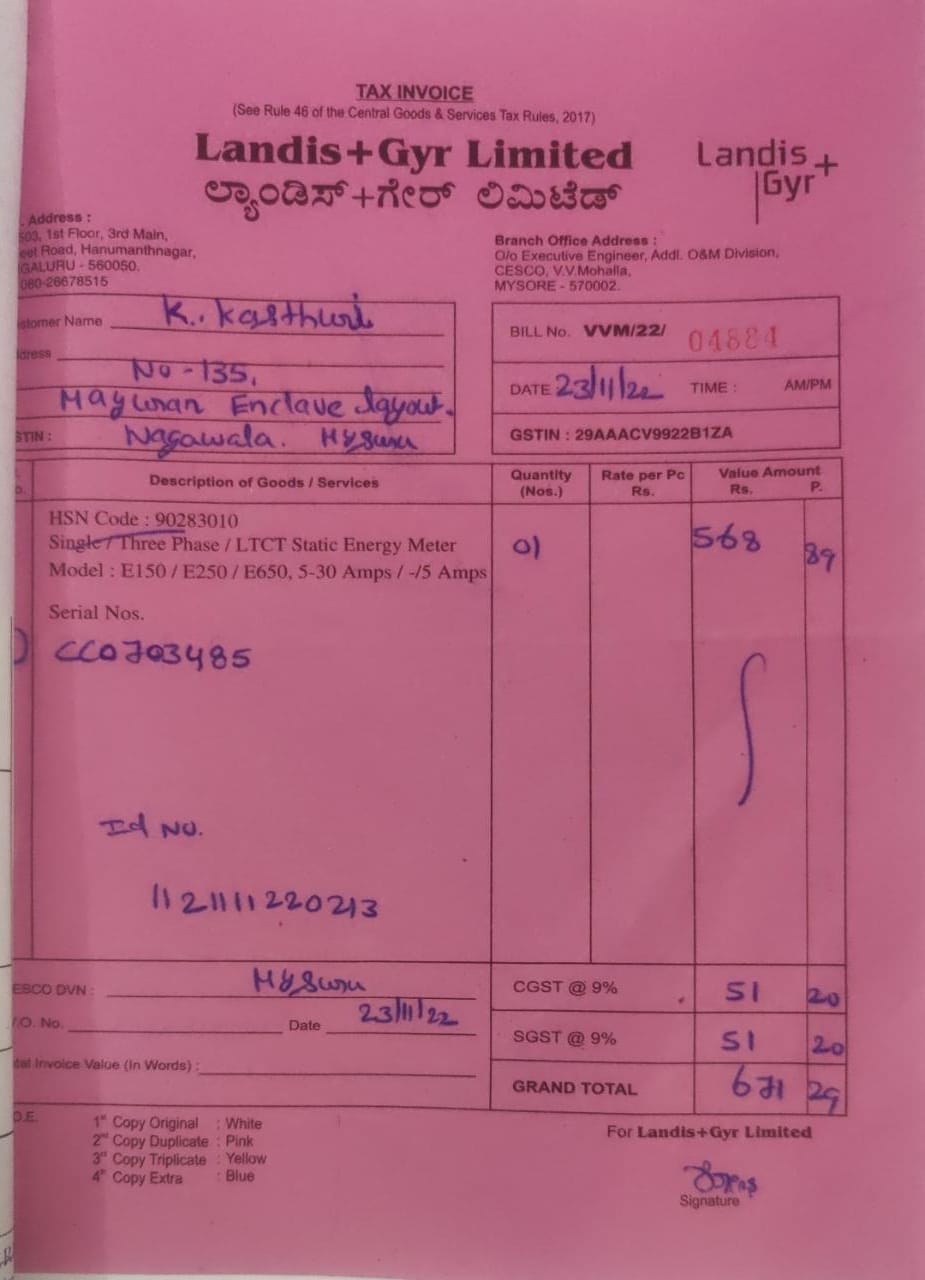 TAX INVOICE
(See Rule 46 of the Central Goods & Services Tax Rules, 2017)
Landis+Gyr Limited
ಲ್ಯಾಂಡಿಸ್+ಗೇರ್ ಲಿಮಿಟೆಡ್
Landis
Gyr+
Address :
503, 1st Floor, 3rd Main,
eet Road, Hanumanthnagar,
GALURU - 560050.
080-26678515
Branch Office Address :
O/o Executive Engineer, Addl. O&M Division,
CESCO, V.V.Mohalla,
MYSORE - 570002.
stomer Name K. Kasthuri
dress
No - 135,
Mayuran Enclave layout.
STIN : Nagawala. Mysuru
BILL No. VVM/22/ 04884
DATE 23/11/22 TIME : AM/PM
GSTIN : 29AAACV9922B1ZA
Description of Goods / Services Quantity (Nos.) Rate per Pc Rs. Value Amount Rs. P.
HSN Code : 90283010
Single / Three Phase / LTCT Static Energy Meter 01 568 89
Model : E150 / E250 / E650, 5-30 Amps / -/5 Amps
Serial Nos.
) CC0703485
Id No.
1121111220213
ESCO DVN : Mysuru
.O. No. Date 23/11/22
tal Invoice Value (In Words) :
CGST @ 9% 51 20
SGST @ 9% 51 20
GRAND TOTAL 671 29
O.E.
1st Copy Original : White
2nd Copy Duplicate : Pink
3rd Copy Triplicate : Yellow
4th Copy Extra : Blue
For Landis+Gyr Limited
Signature